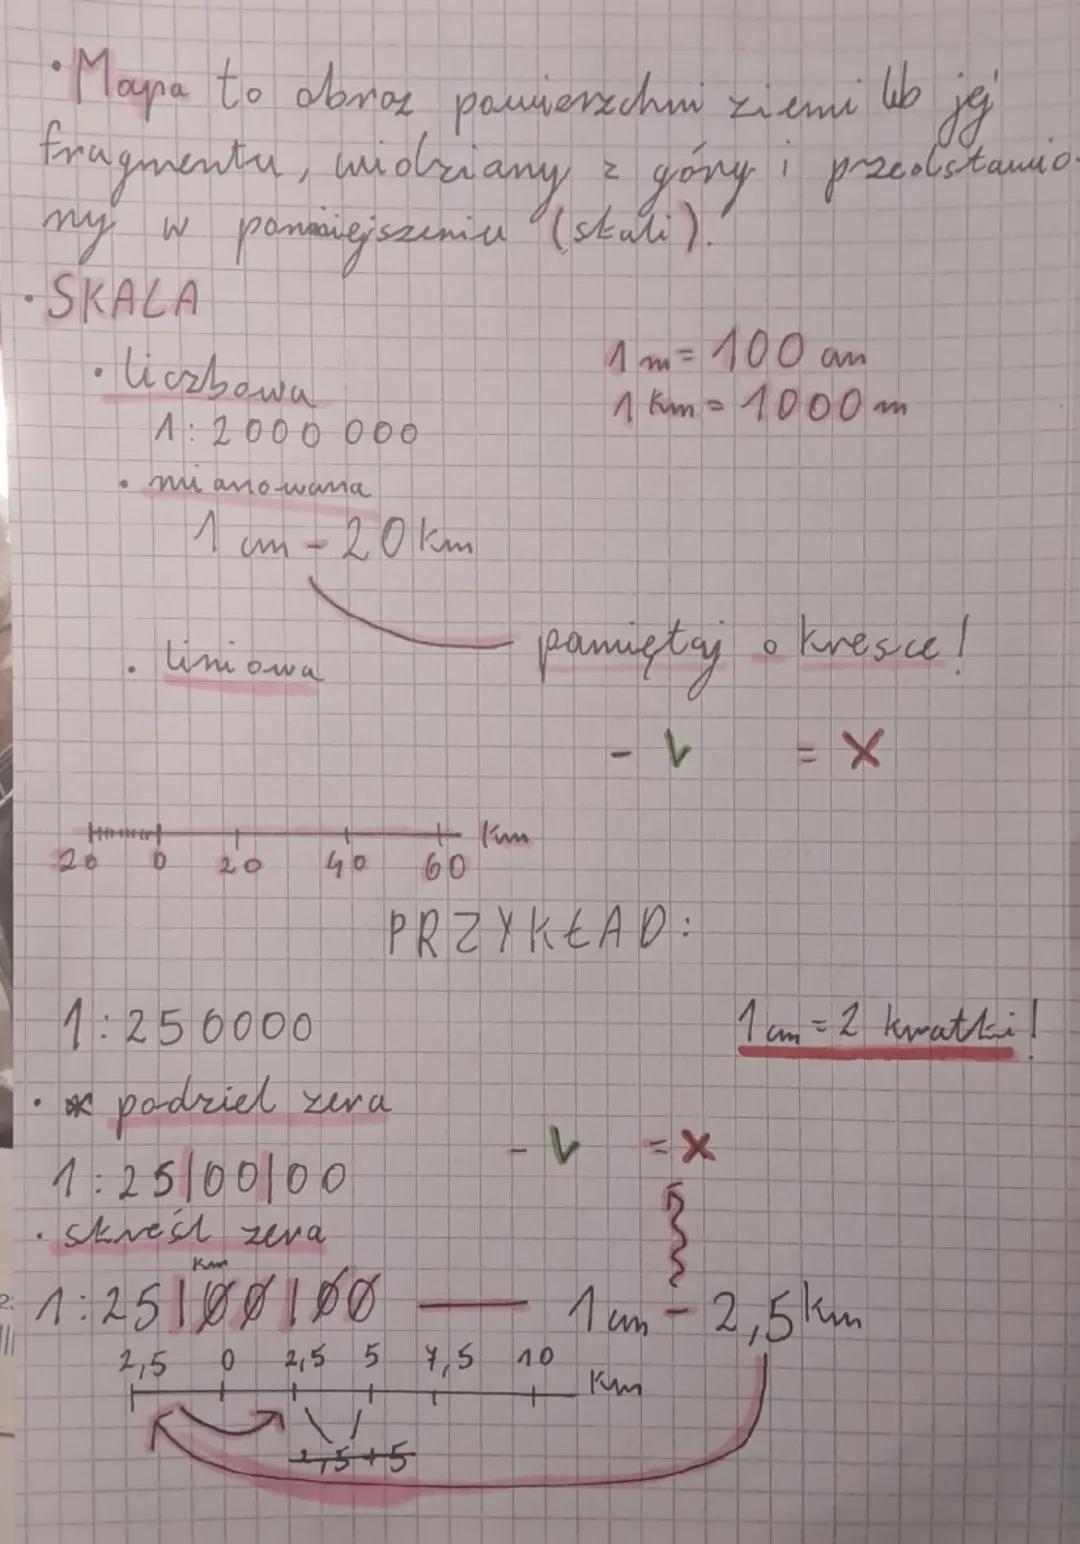 • Mapa to obraz powierzchni ziemi lub jej
fragmentu, widziany z góry i przedstawio-
ny w pomniejszeniu (skali).
• SKALA
• liczbowa
1 m = 100 cm
1 km = 1000 m
1 : 2 000 000
• mianowana
1 cm - 20 km
pamiętaj o kresce!
• liniowa
- V = X
km
20 0 20 40 60
PRZYKŁAD:
1 : 250000
1 cm = 2 kratki!
• podziel zera
- V = X
1 : 25|00|00
• skreśl zera
km
1 : 25|00|00 — 1 cm - 2,5 km
2,5 0 2,5 5 7,5 10
km
2,5 + 5